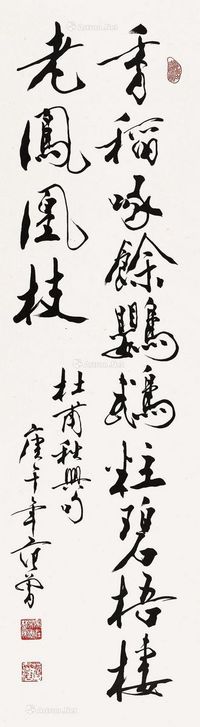 香稻啄餘鸚鵡粒碧梧棲
老鳳凰枝
杜甫秋興句
庚午年范曾